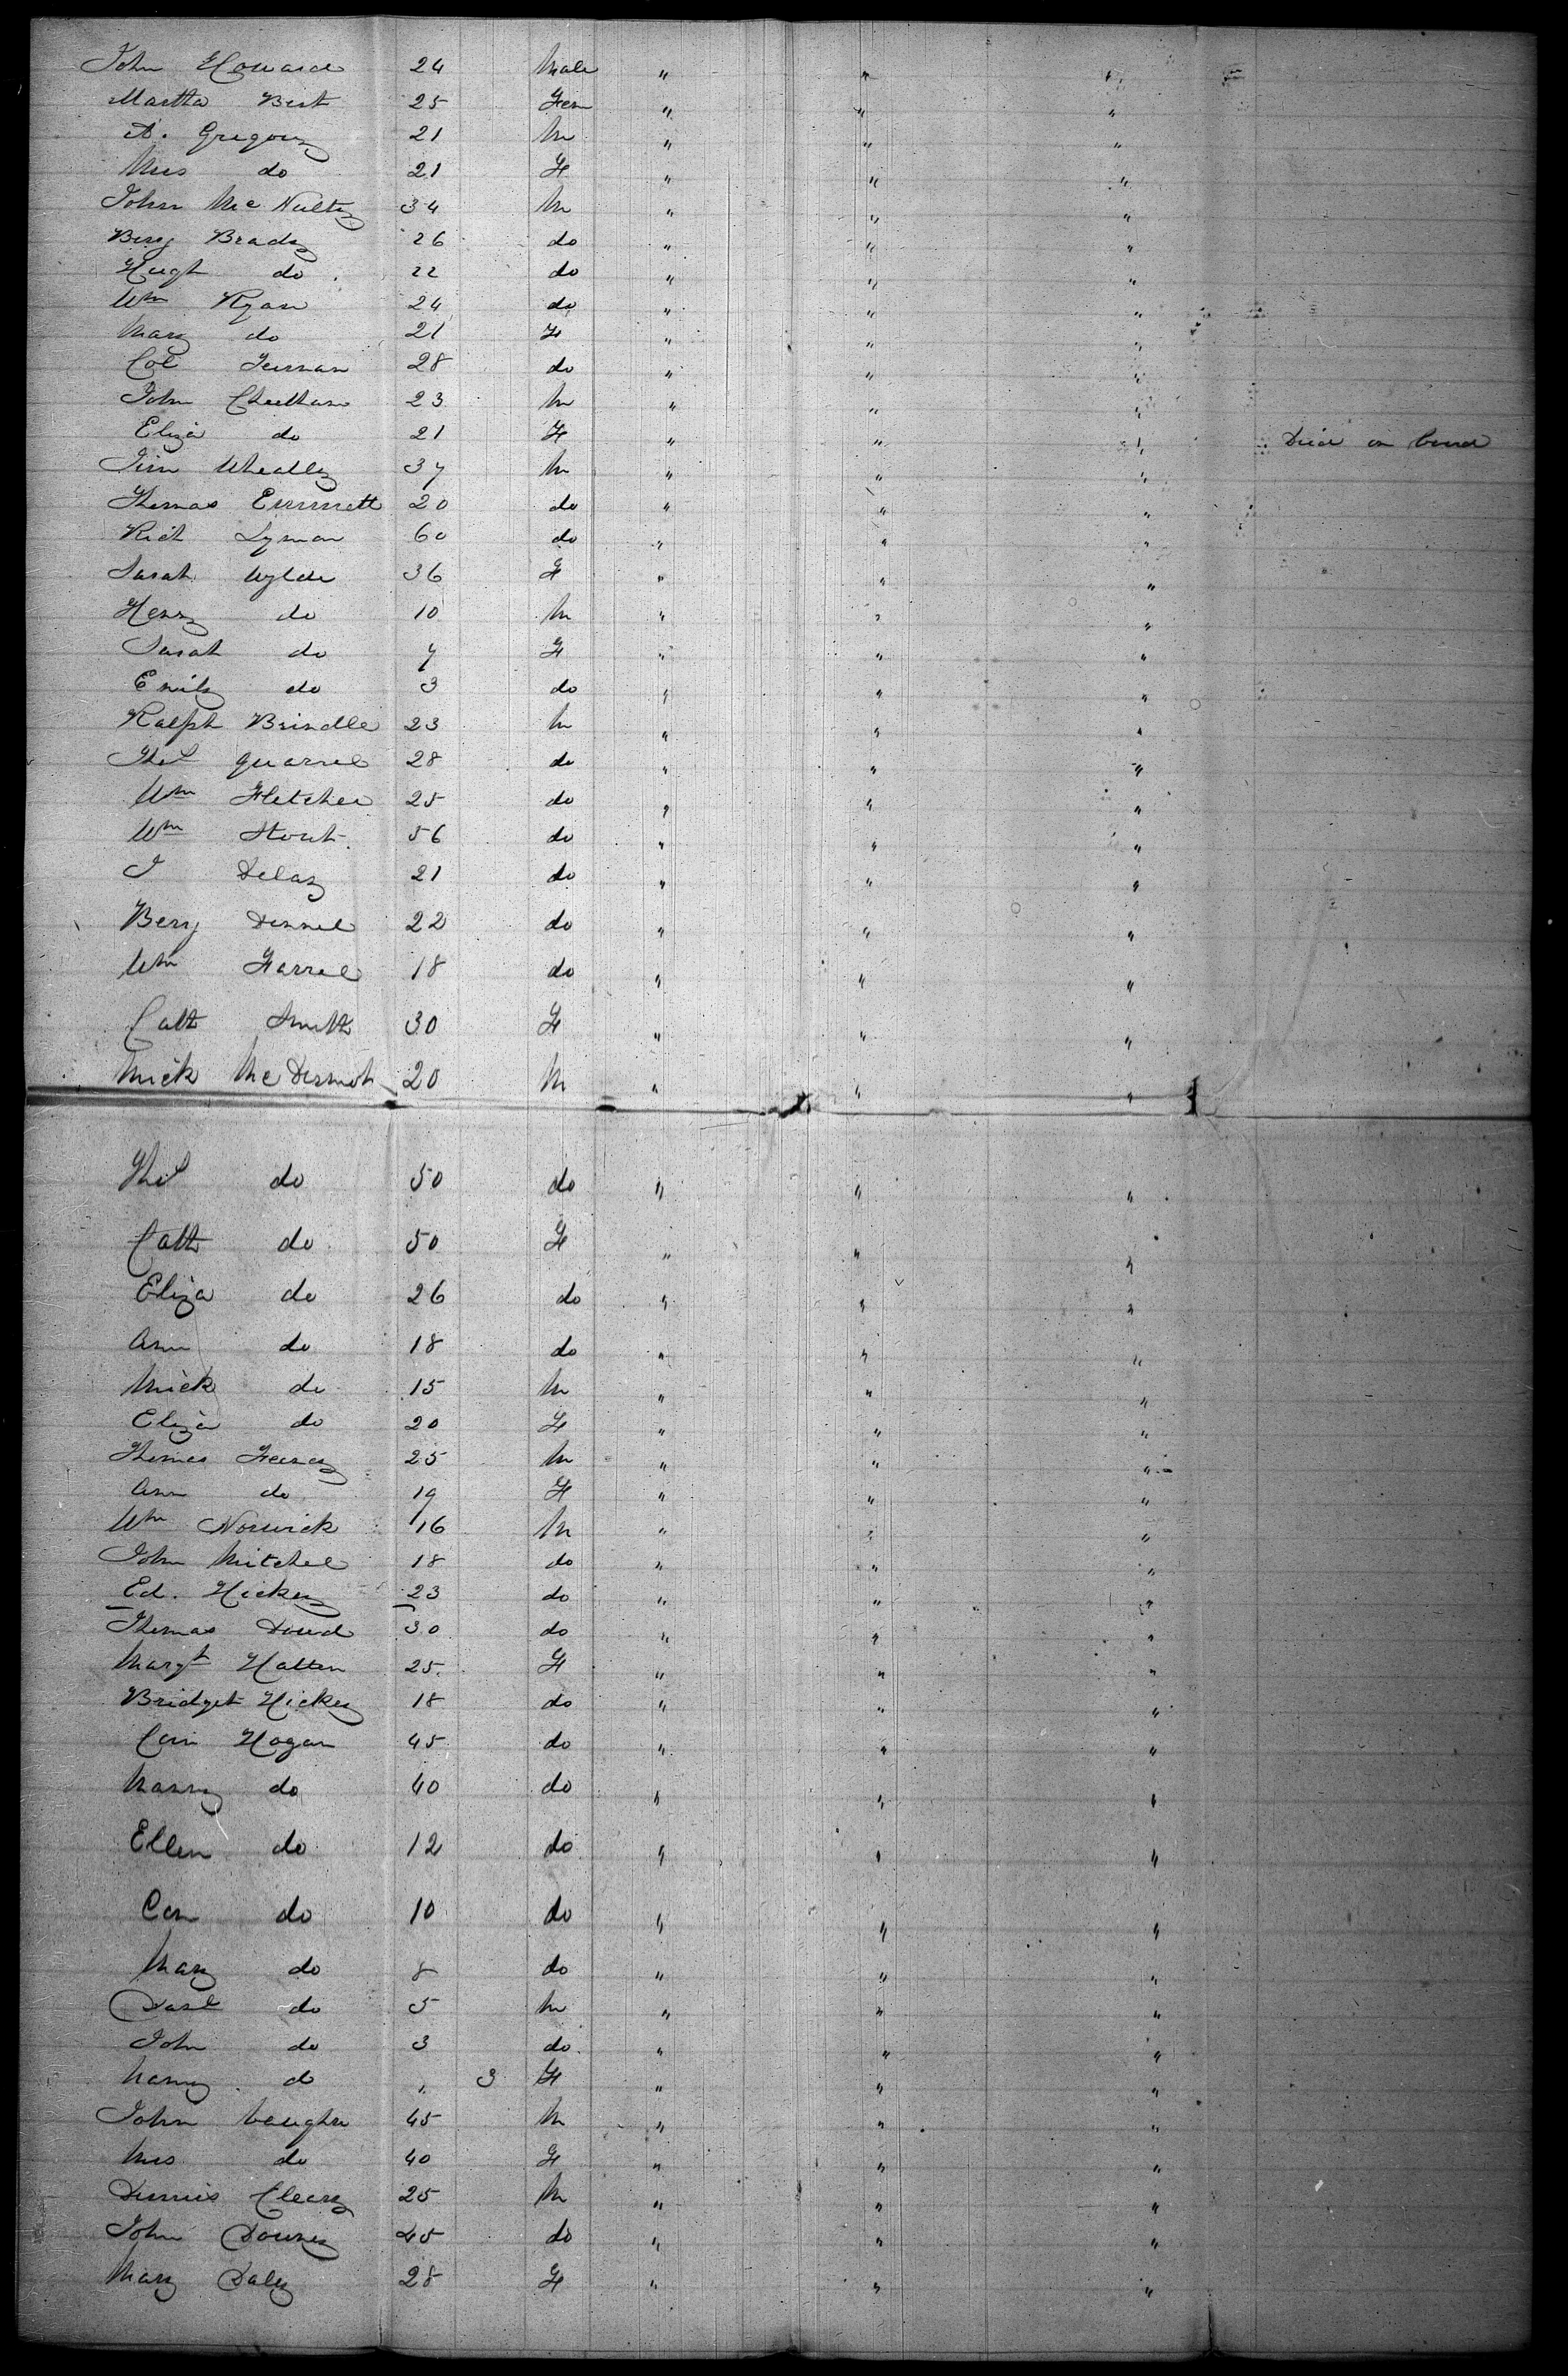 John Howard 24 Male " " "
Martha Best 25 Fem " " "
A. Gregory 21 M " " "
Mrs do 21 F " " "
John McNulty 34 M " " "
Benj Brady 26 do " " "
Hugh do 22 do " " "
Wm Ryan 24 do " " "
Mary do 21 F " " "
Col 28 do " " "
John Cheetham 23 M " " "
Eliza do 21 F " " " Died on board
Jim Wheatley 37 M " " "
Thomas Emmett 20 do " " "
Rich Lyman 60 do " " "
Sarah Wylde 36 F " " "
Henry do 10 M " " "
Sarah do 7 F " " "
Emily do 3 do " " "
Ralph Brindle 23 M " " "
Thos Quarrel 28 do " " "
Wm Fletcher 25 do " " "
Wm Stout 56 do " " "
J Delay 21 do " " "
Benj 22 do " " "
Wm Farrel 18 do " " "
Cath Smith 30 F " " "
Mick McDermot 20 M " " "
Thos do 50 do " " "
Cath do 50 F " " "
Eliza do 26 do " " "
Ann do 18 do " " "
Mick do 15 M " " "
Eliza do 20 F " " "
Thomas Feeney 25 M " " "
Ann do 19 F " " "
Wm Norwick 16 M " " "
John Mitchel 18 do " " "
Ed. Hickey 23 do " " "
Thomas Dowd 30 do " " "
Margt Hatten 25 F " " "
Bridget Hickey 18 do " " "
Con Hogan 45 do " " "
Nanny do 40 do " " "
Ellen do 12 do " " "
Con do 10 do " " "
Mary do 8 do " " "
Danl do 5 M " " "
John do 3 do " " "
Nanny do " 3 F " " "
John Vaughn 45 M " " "
Mrs do 40 F " " "
Dennis Cleary 25 M " " "
John Downey 45 do " " "
Mary Daley 28 F " " "